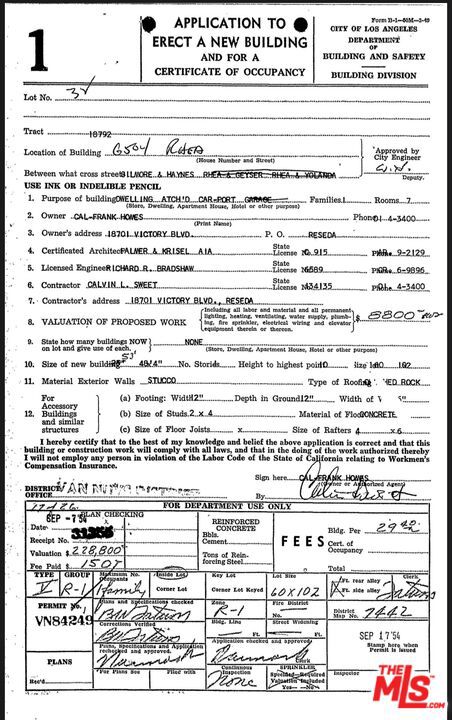 Form B-1—60M—3-49
1
APPLICATION TO
ERECT A NEW BUILDING
AND FOR A
CERTIFICATE OF OCCUPANCY
CITY OF LOS ANGELES
DEPARTMENT
OF
BUILDING AND SAFETY
BUILDING DIVISION
Lot No. 32
Tract 18792
Location of Building 6504 RHEA
(House Number and Street)
Approved by
City Engineer
Deputy.
Between what cross streets BILMORE & HAYNES RHEA & GEYSER RHEA & YOLANDA
USE INK OR INDELIBLE PENCIL
1. Purpose of building DWELLING ATCH'D CAR-PORT GARAGE Families 1 Rooms 7
(Store, Dwelling, Apartment House, Hotel or other purpose)
2. Owner CAL-FRANK HOMES Phone DI 4-3400
(Print Name)
3. Owner's address 18701 VICTORY BLVD., P. O. RESEDA
4. Certificated Architect PALMER & KRISEL AIA State License No. C 915 Phone 9-2129
5. Licensed Engineer RICHARD R. BRADSHAW State License No. 6589 Phone OR. 6-9896
6. Contractor CALVIN L. SWEET State License No. 134135 Phone DI. 4-3400
7. Contractor's address 18701 VICTORY BLVD., RESEDA
8. VALUATION OF PROPOSED WORK {Including all labor and material and all permanent lighting, heating, ventilating, water supply, plumbing, fire sprinkler, electrical wiring and elevator equipment therein or thereon.} $ 8800
9. State how many buildings NOW on lot and give use of each. NONE
(Store, Dwelling, Apartment House, Hotel or other purpose)
10. Size of new building 48'4" No. Stories Height to highest point 10 Size lot 60 102
11. Material Exterior Walls STUCCO Type of Roofing ROCK
For Accessory Buildings and similar structures
12.
(a) Footing: Width 12" Depth in Ground 12" Width of W
(b) Size of Studs 2 x 4 Material of Floor CONCRETE
(c) Size of Floor Joists x Size of Rafters 4 x 6
I hereby certify that to the best of my knowledge and belief the above application is correct and that this
building or construction work will comply with all laws, and that in the doing of the work authorized thereby
I will not employ any person in violation of the Labor Code of the State of California relating to Workmen's
Compensation Insurance.
Sign here CAL-FRANK HOMES
(Owner or Authorized Agent)
DISTRICT OFFICE VAN NUYS DISTRICT
By
FOR DEPARTMENT USE ONLY
PLAN CHECKING
Date SEP -7 '54
Receipt No.
Valuation $ 228,800
Fee Paid $ 150
REINFORCED CONCRETE
Bbls. Cement
Tons of Reinforcing Steel
FEES
Bldg. Per. 29
Cert. of Occupancy
TYPE V
GROUP R-1
Maximum No. Occupants 1 family
Inside Lot
Corner Lot
Key Lot
Corner Lot Keyed
Lot Size 60 X 102
Ft. rear alley
Ft. side alley
Clerk
PERMIT No. VN84249
Plans and Specifications checked
Corrections Verified
Zone R-1
Bldg. Line Ft.
Fire District
Street Widening Ft.
District Map No. 7442
SEP 17 '54
Stamp here when Permit is issued
PLANS
Rec'd
Plans, Specifications and Application rechecked and approved.
For Plans See
Filed with
Application checked and approved
Clerk
Continuous Inspection None
SPRINKLER
Specified-Required
Valuation Included
Yes—No
Inspector
THE
MLS.COM